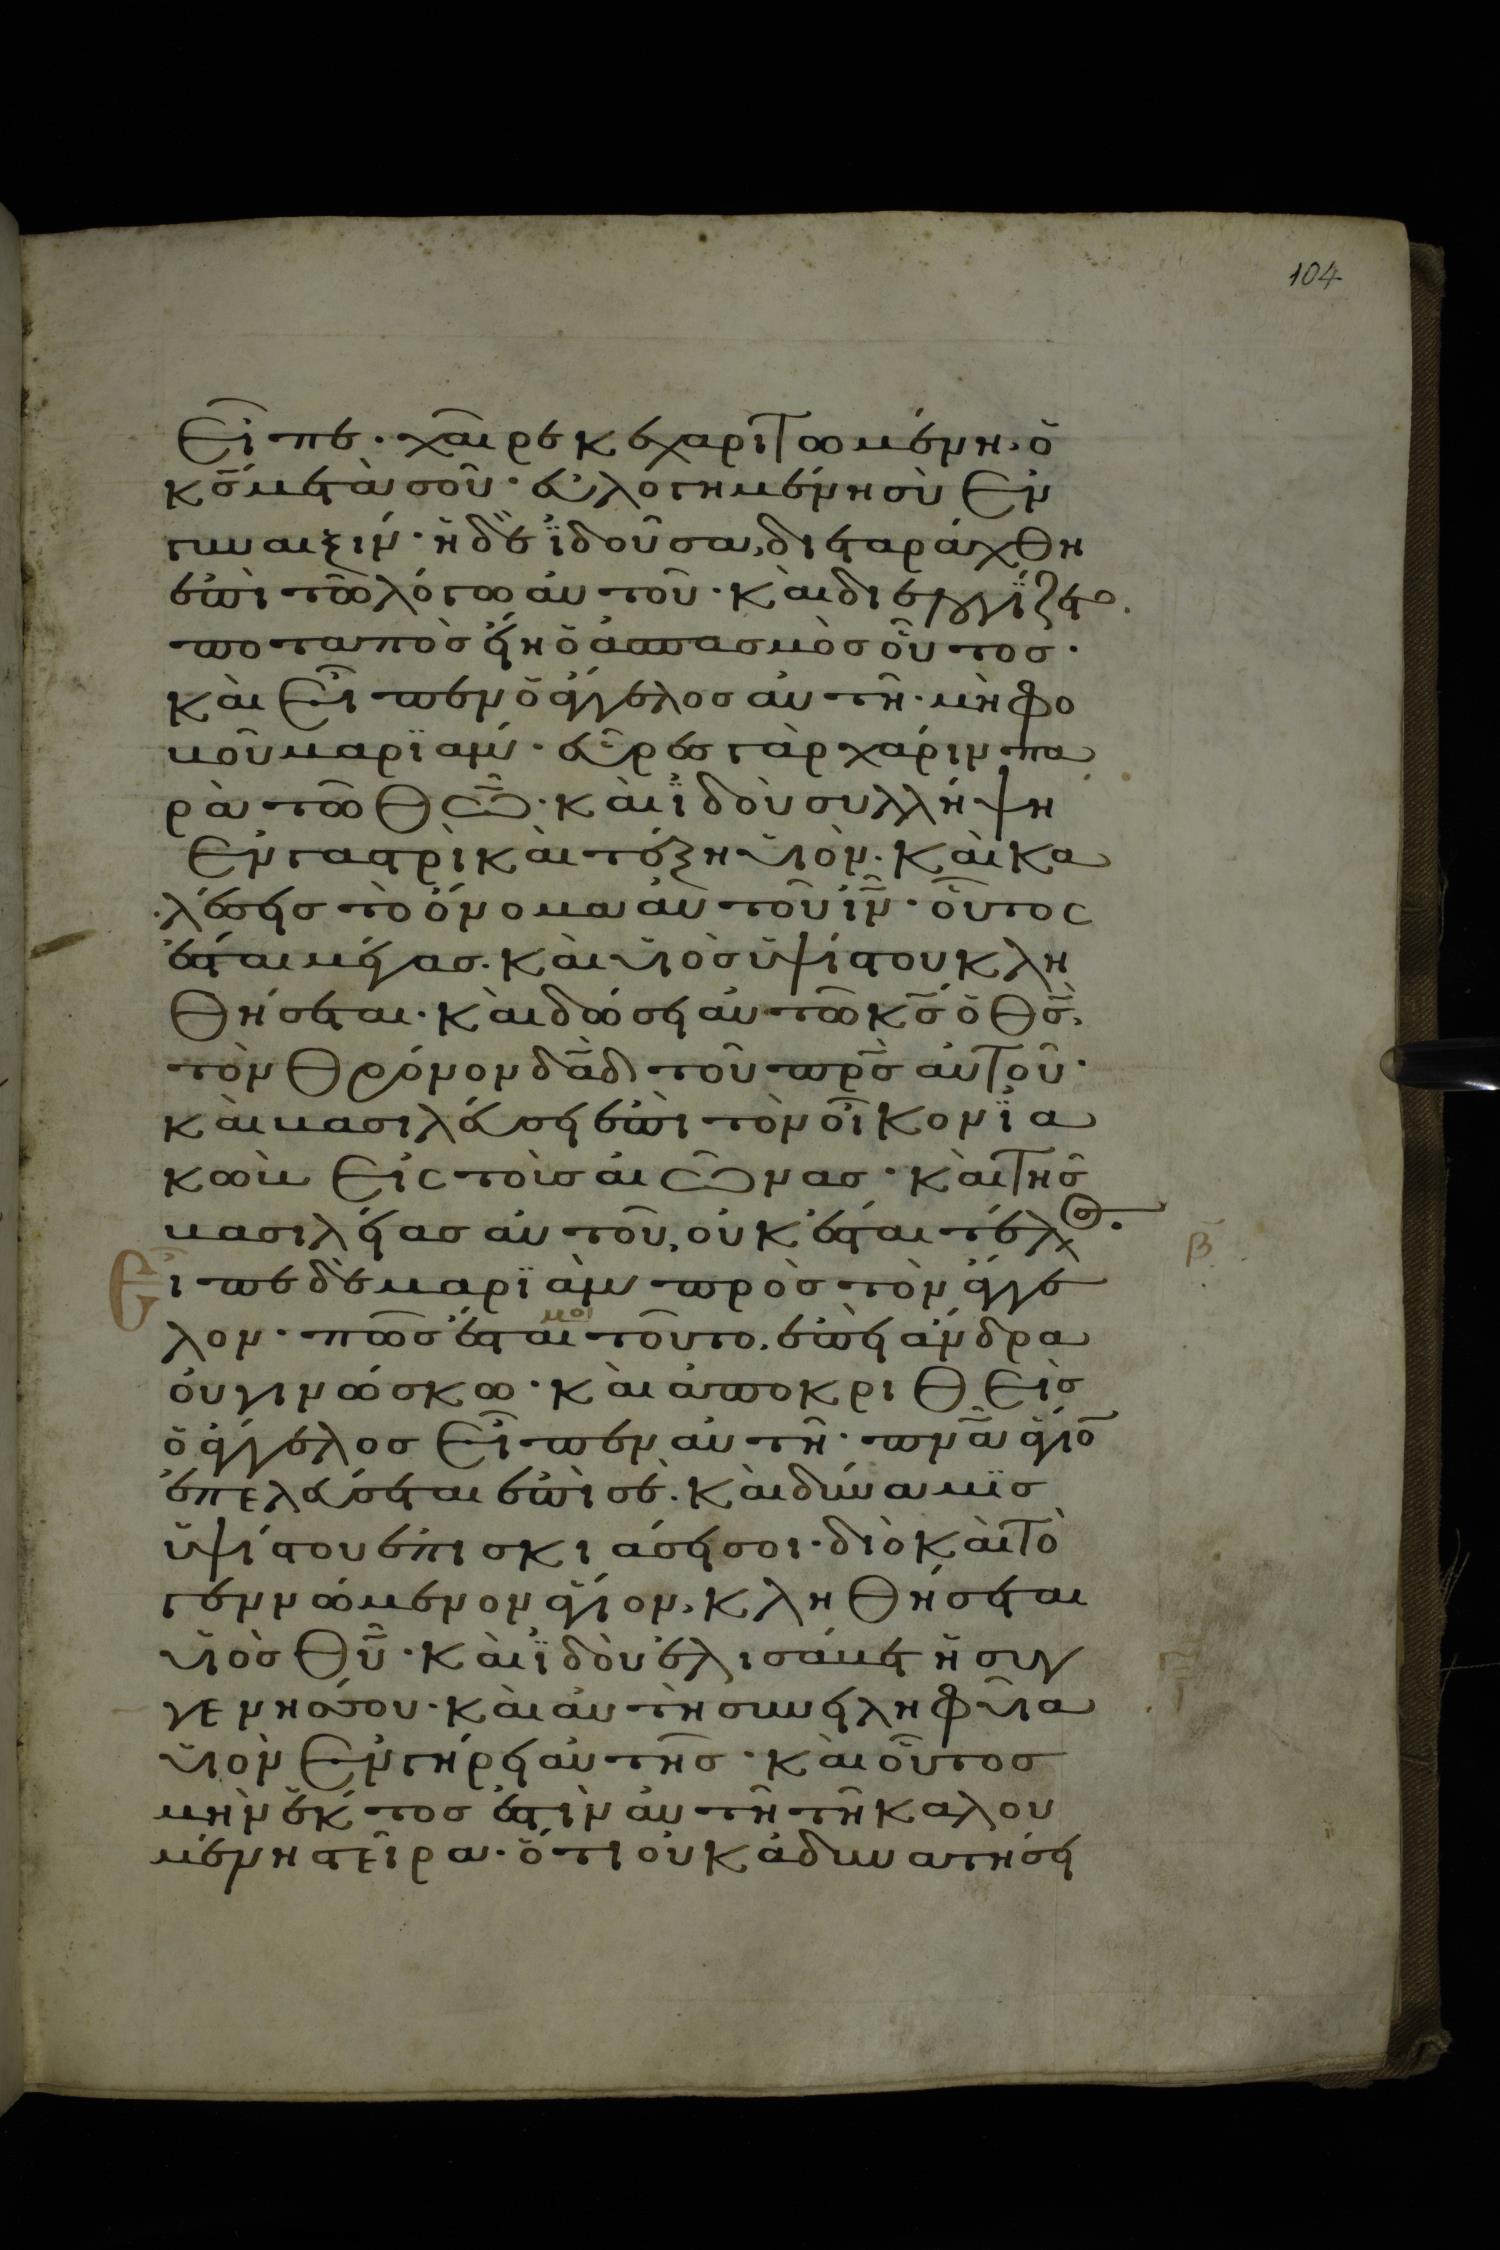 104
εἶπε· χαῖρε κεχαριτωμένη· ὁ
κ̅ς̅ μετὰ σοῦ· εὐλογημένη σὺ ἐν
γυναιξίν· ἡ δὲ ἰδοῦσα, διεταράχθη
ἐπὶ τῶ λόγω αὐτοῦ· καὶ διελογίζετο.
ποταπὸς εἴη ὁ ἀσπασμὸς οὗτος·
καὶ εἶπεν ὁ ἄγγελος αὐτῆ· μὴ φο
βοῦ μαριάμ· εὗρες γὰρ χάριν πα
ρὰ τῶ θ̅ω̅· καὶ ἰδοὺ συλλήψη
ἐν γαστρὶ καὶ τέξη υἱόν· καὶ κα
λέσεις τὸ ὄνομα αὐτοῦ ι̅ν̅· οὗτος
ἔσται μέγας. καὶ υἱὸς ὑψίστου κλη
θήσεται· καὶ δώσει αὐτῶ κ̅ς̅ ὁ θ̅ς̅,
τὸν θρόνον δ̅α̅δ̅ τοῦ π̅ρ̅ς̅ αὐτοῦ·
καὶ βασιλεύσει ἐπὶ τὸν οἶκον ἰα
κὼβ εἰς τοὺς αἰῶνας· καὶ τῆς
βασιλείας αὐτοῦ, οὐκ ἔσται τέλος.
β̅
εἶπε δὲ μαριὰμ πρὸς τὸν ἄγγε
λον· πῶς ἔσται μοι τοῦτο. ἐπεὶ ἄνδρα
οὐ γινώσκω· καὶ ἀποκριθεὶς
ὁ ἄγγελος εἶπεν αὐτῆ· π̅ν̅α̅ ἅγιο̅
ἐπελεύσεται ἐπὶ σέ. καὶ δύναμις
ὑψίστου ἐπισκιάσει σοι· διὸ καὶ τὸ
γεννώμενον ἅγιον, κληθήσεται
υἱὸς θ̅υ̅· καὶ ἰδοὺ ἐλισάβετ ἡ συγ
γενής σου· καὶ αὐτὴ συνειληφυῖα
υἱὸν ἐν γήρει αὐτῆς· καὶ οὗτος
μὴν ἕκτος ἐστὶν αὐτῆ τῆ καλου
μένη στεῖρα· ὅτι οὐκ ἀδυνατήσει